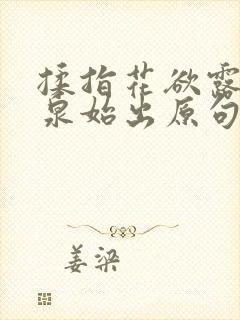 揉指花欲露
泉始出原句
姜梁